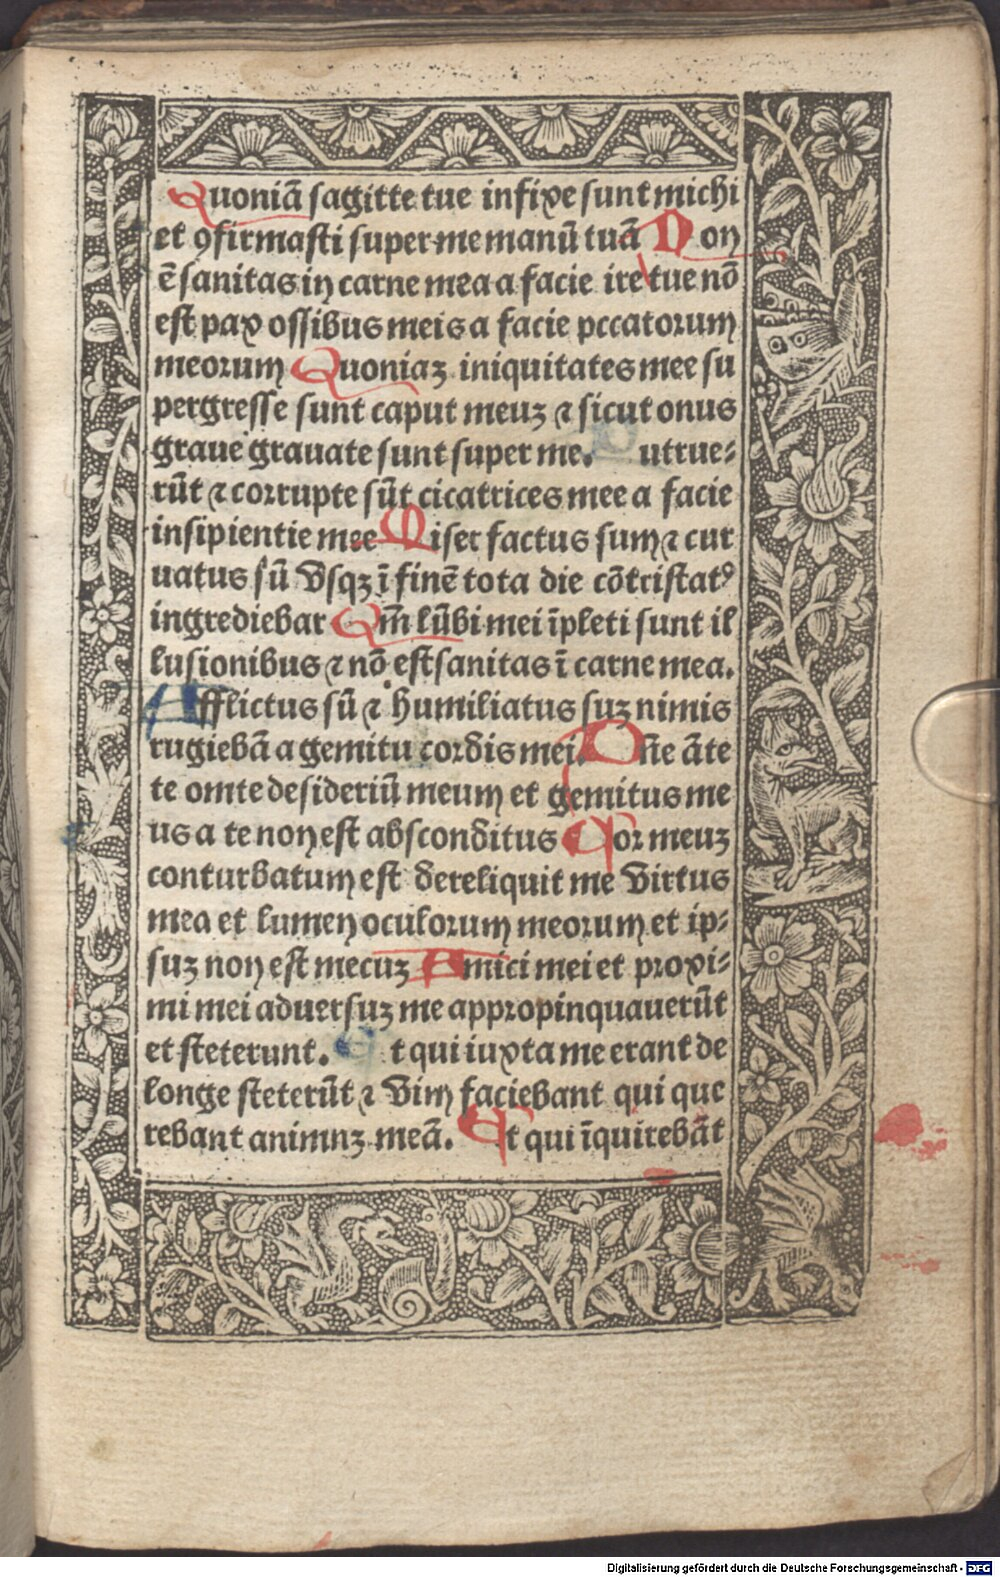 Quoniā sagitte tue infixe sunt michi
et ꝯfirmasti super me manū tuā Non
ē sanitas in carne mea a facie ire tue nō
est pax ossibus meis a facie pccatorum
meorum Quoniaꝫ iniquitates mee su
pergresse sunt caput meuꝫ ⁊ sicut onus
graue grauate sunt super me. utrue⸗
rūt ⁊ corrupte sūt cicatrices mee a facie
insipientie mee Miser factus sum ⁊ cur
uatus sū vsqꝫ ī finē tota die cōtristatꝰ
ingrediebar Qm̄ lūbi mei īpleti sunt il
lusionibus ⁊ nō est sanitas ī carne mea.
Afflictus sū ⁊ humiliatus suꝫ nimis
rugiebā a gemitu cordis mei. Dn̄e āte
te omte desideriū meum et gemitus me
us a te non est absconditus Cor meuꝫ
conturbatum est dereliquit me virtus
mea et lumen oculorum meorum et ip⸗
suꝫ non est mecuꝫ Amici mei et proxi⸗
mi mei aduersuꝫ me appropinquauerūt
et steterunt. Et qui iuxta me erant de
longe steterūt ⁊ vim faciebant qui que
rebant animnꝫ meā. Et qui īquirebāt
Digitalisierung gefördert durch die Deutsche Forschungsgemeinschaft - DFG